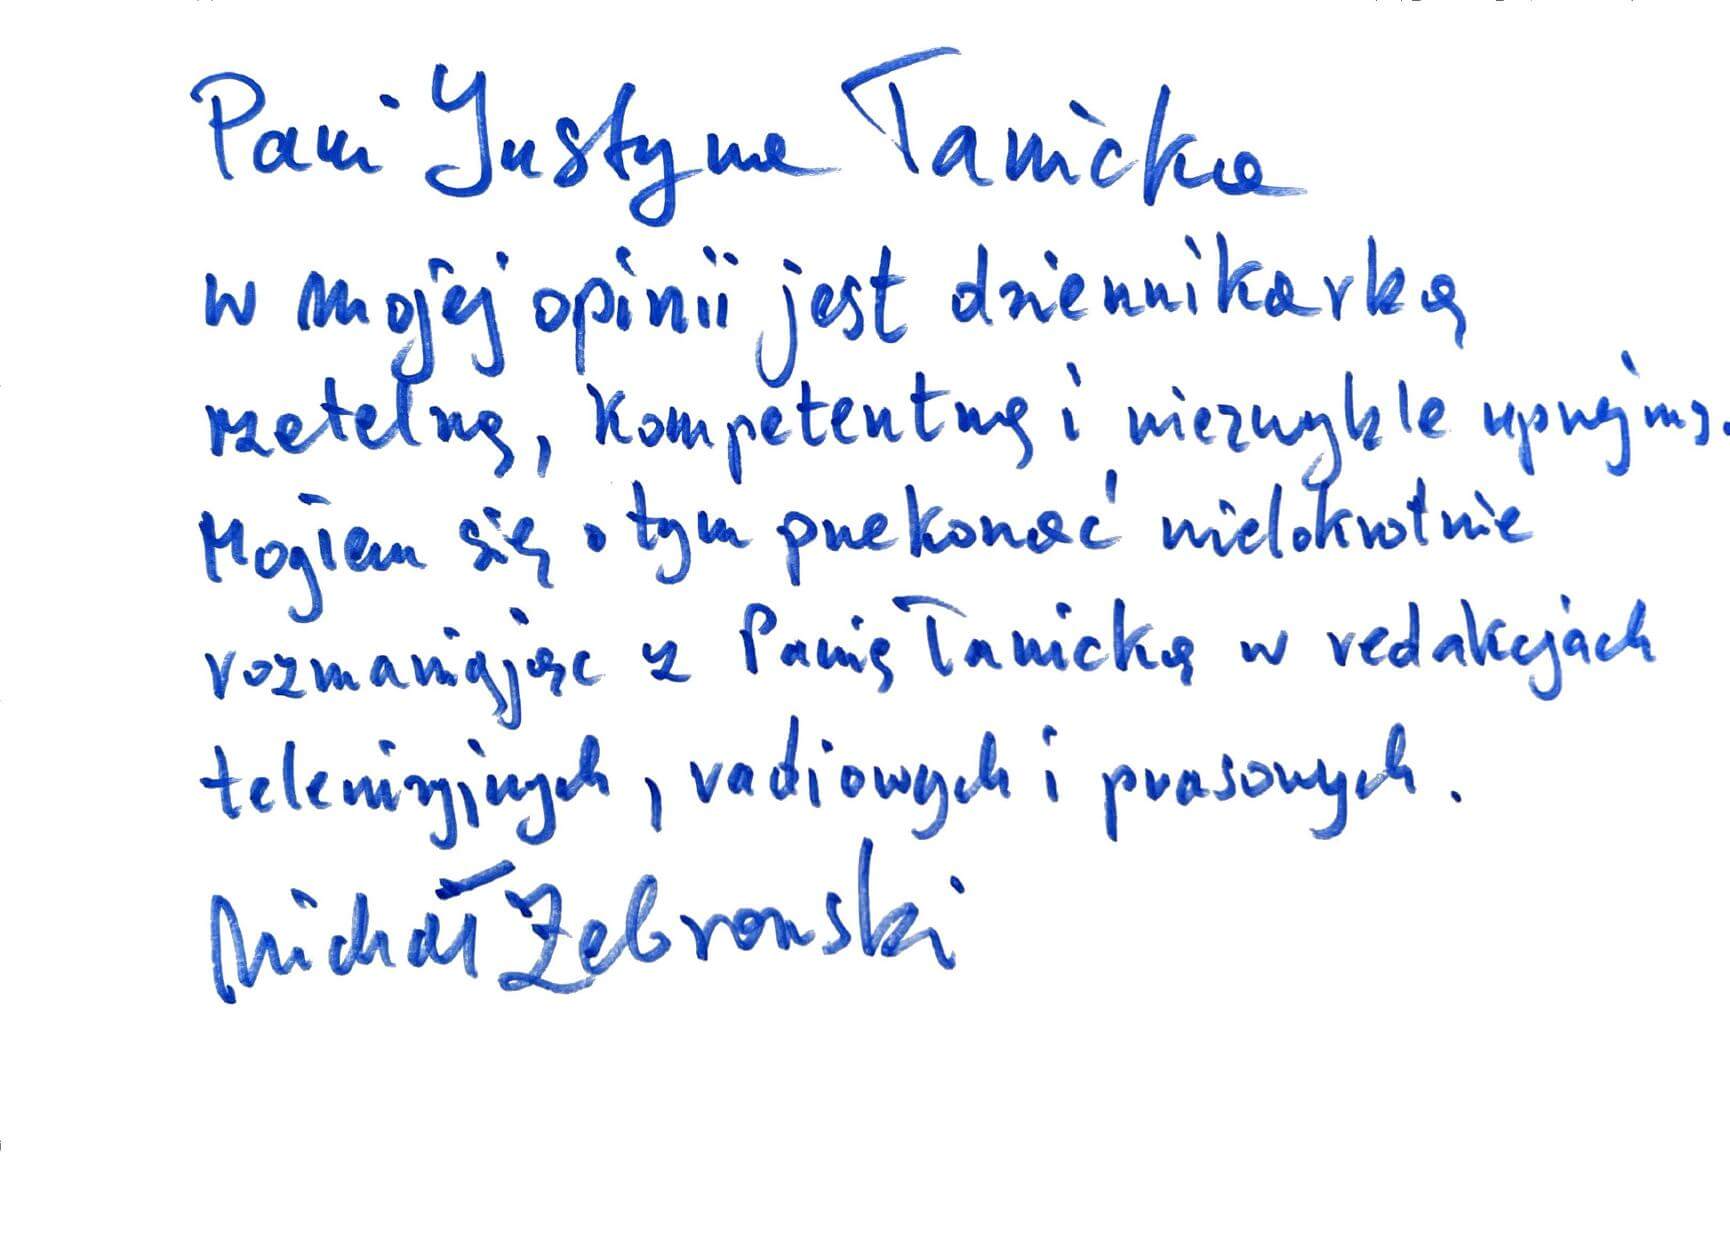 Pani Justyna Tanicka
w mojej opinii jest dziennikarką
rzetelną, kompetentną i niezwykle uprzejmą.
Mogłem się o tym przekonać wielokrotnie
rozmawiając z Panią Tanicką w redakcjach
telewizyjnych, radiowych i prasowych.
Michał Żebrowski